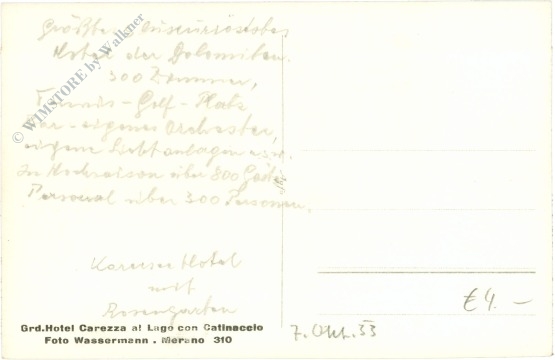 Größtes luxuriöstes
Hotel der Dolomiten.
300 Zimmer,
Tennis - Golf - Platz
eigenes Orchester,
eigene Lichtanlagen usw.
In Hochsaison über 800 Gäste
Personal über 300 Personen.
Karersee Hotel
mit
Rosengarten
Grd.Hotel Carezza al Lago con Catinaccio
Foto Wassermann . Merano 310
7. Okt. 33
€ 4. -
© WIMSTORE by Walkner